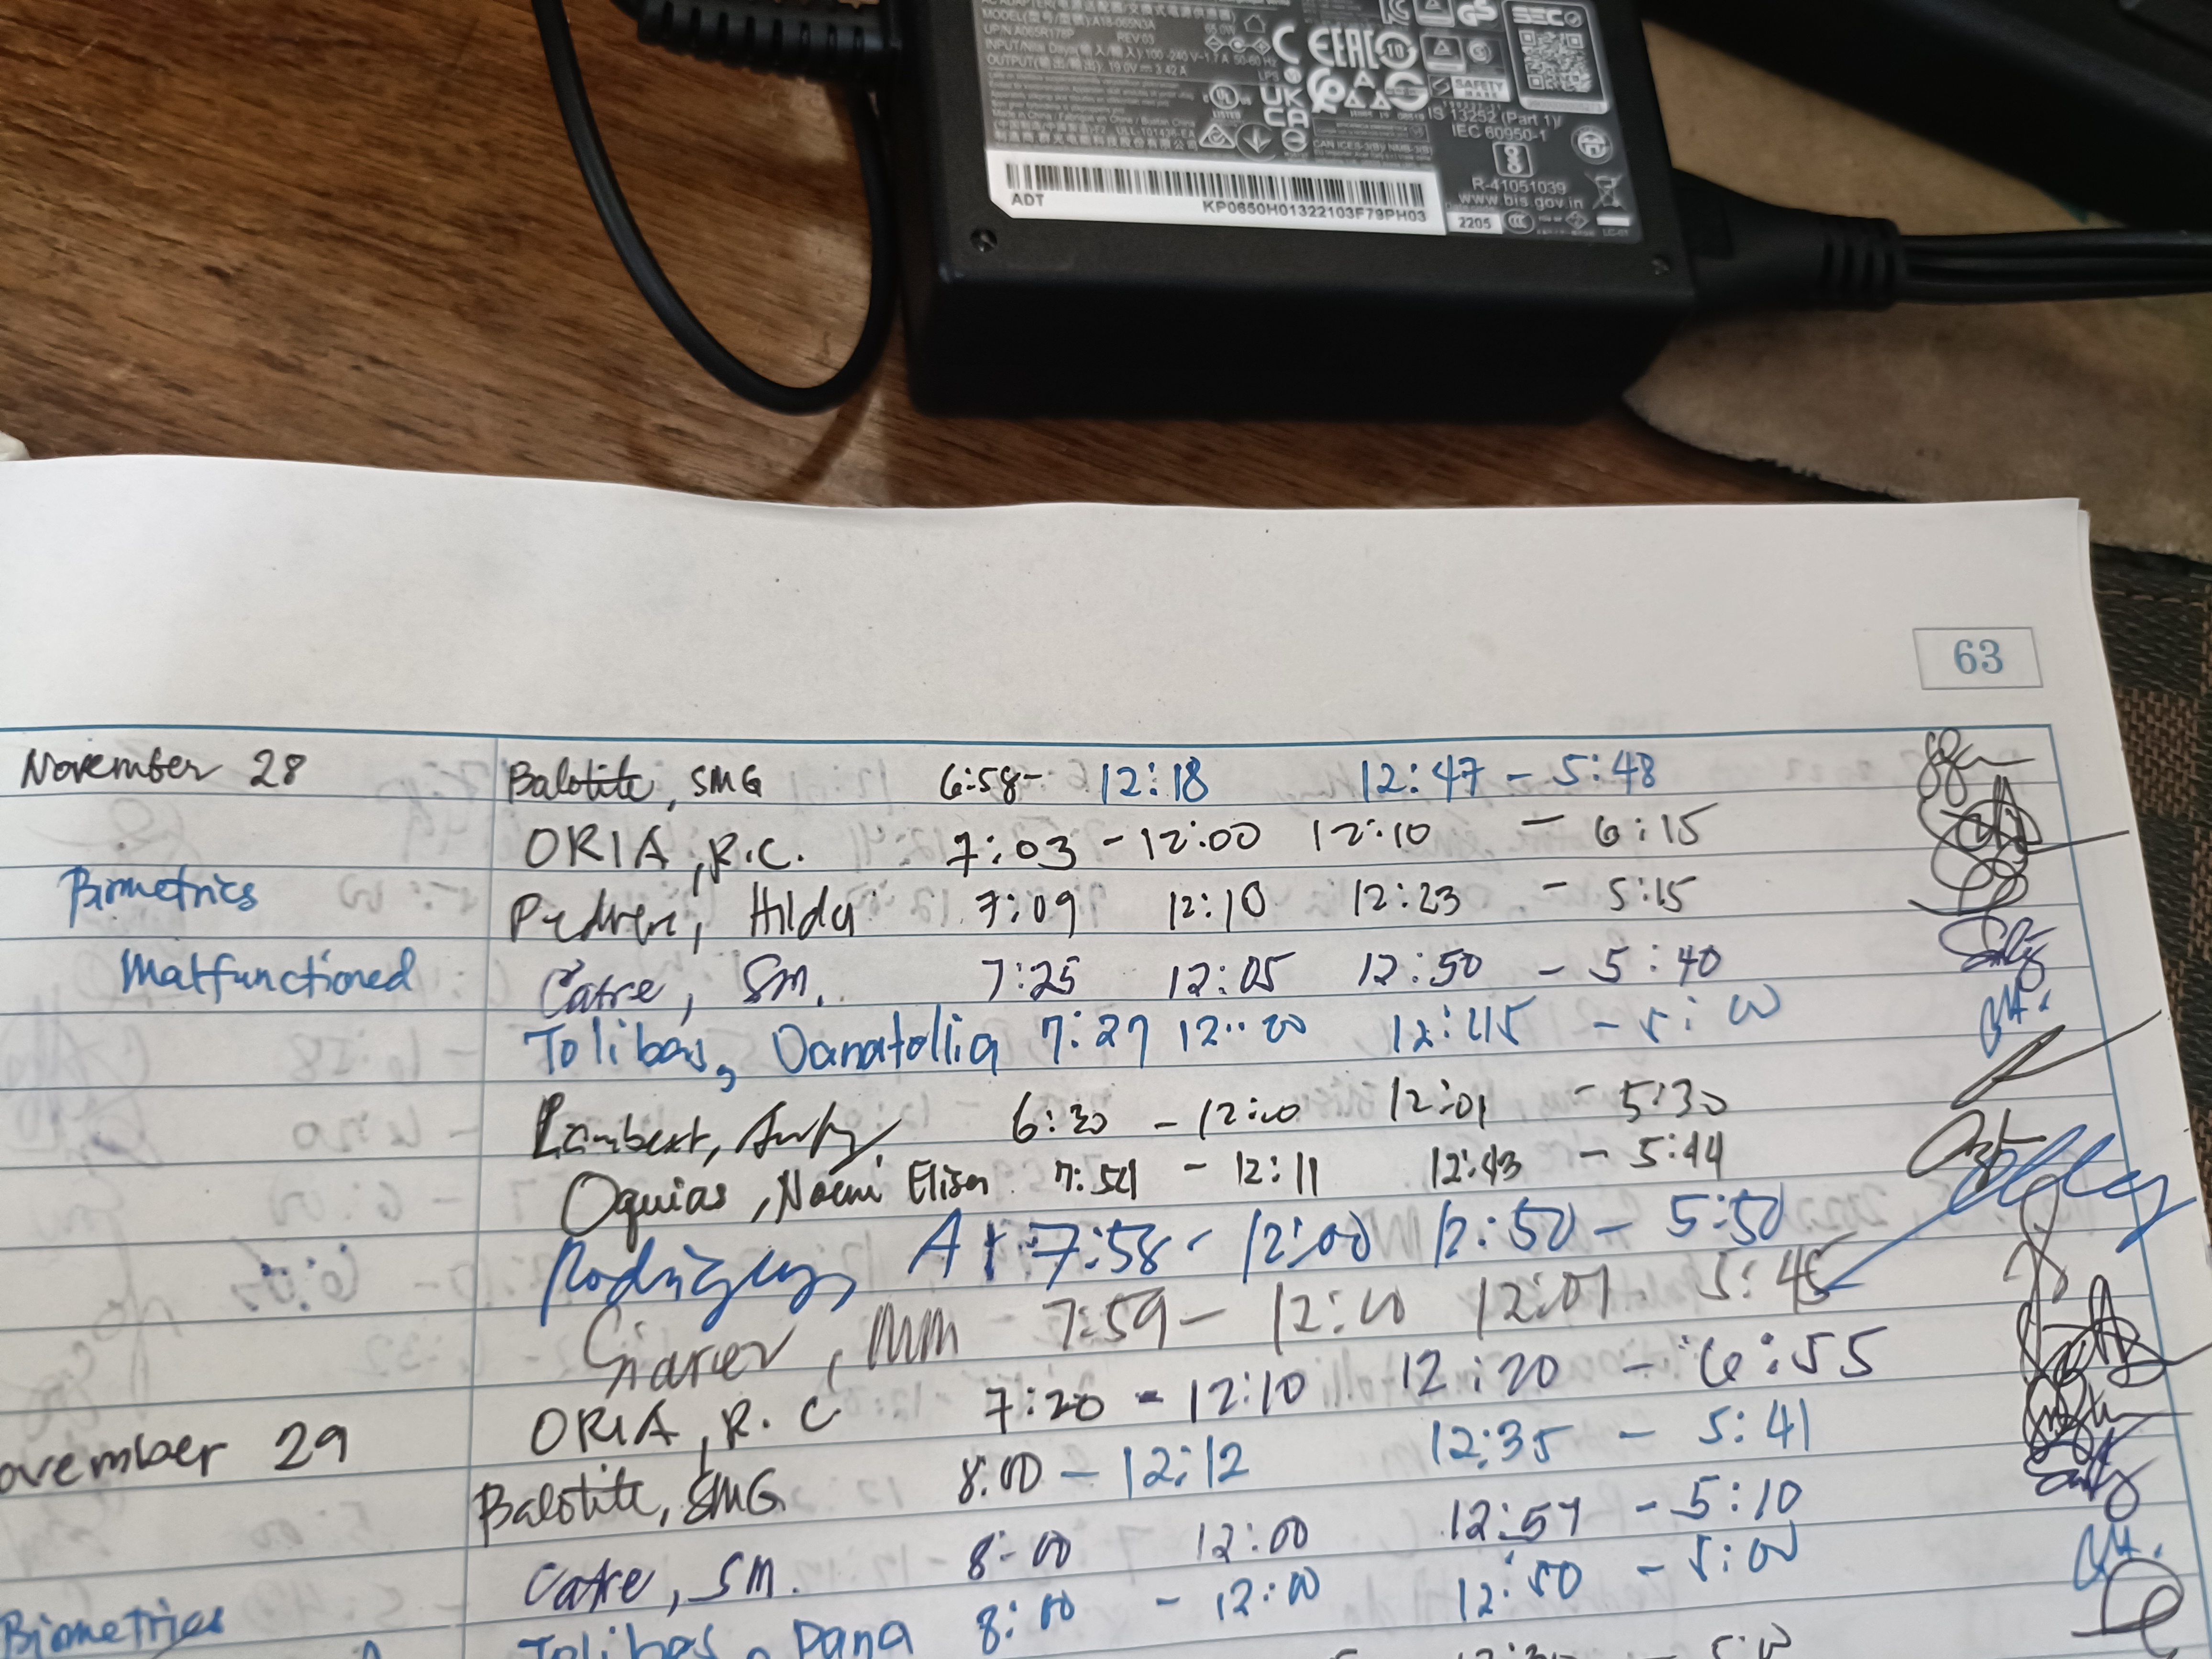 MODEL(型号/型號):A18-065N3A
UP/N:A065R178P REV:03
OUTPUT(输出/輸出): 19.0V 3.42A
LPS
UL
LISTED
UK
CA
EAC
10
GS
SEC
SAFETY
IS 13252 (Part 1)/
IEC 60950-1
R-41051039
www.bis.gov.in
CAN ICES-3(B)/ NMB-3(B)
ADT KP0650H01322103F79PH03
2205
63
November 28 Balotite, SMG 6:58- 12:18 12:47 - 5:48
ORIA, R.C. 7:03 - 12:00 12:10 - 6:15
Biometrics
Hilda 7:09 12:10 12:23 - 5:15
Malfunctioned Catre, SM. 7:25 12:05 12:50 - 5:40
Tolibas, Danatollia 7:27 12:00 12:45 - 5:00
Lambert, 6:30 - 12:00 12:01 - 5:30
Oquias, Noemi Elisa 7:54 - 12:11 12:43 - 5:44
Rodriguez, A 7:58 - 12:00 12:50 - 5:50
MM 7:59 - 12:00 12:01 5:45
ORIA, R.C 7:20 - 12:10 12:20 - 6:55
ovember 29
Balotite, SMG 8:00 - 12:12 12:35 - 5:41
Catre, SM. 8:00 12:00 12:57 - 5:10
Biometrics Tolibas, Dana 8:00 - 12:00 12:50 - 5:00